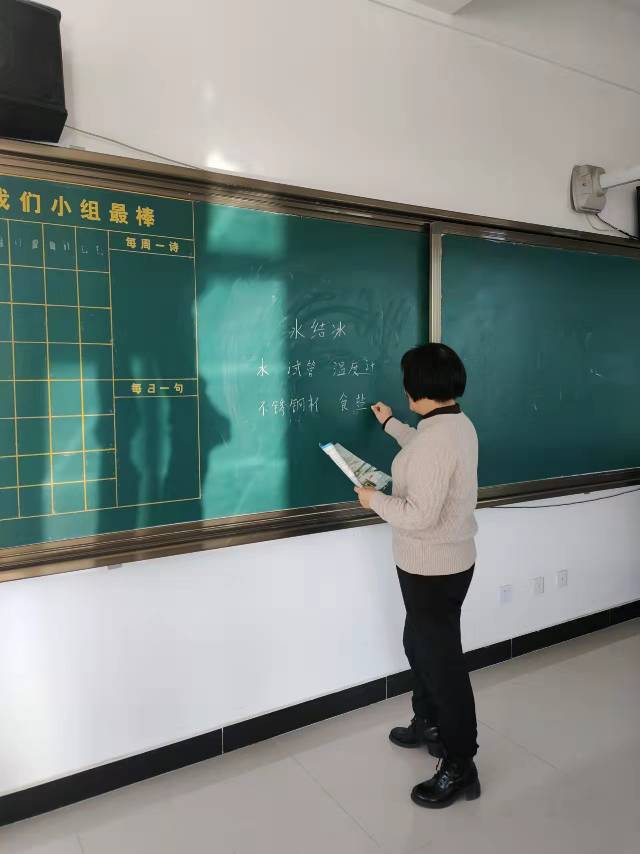 我们小组最棒
每周一诗
每日一句
水结冰
水 试管 温度计
不锈钢杯 食盐